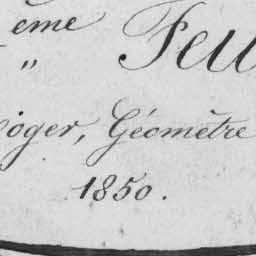 eme Feu
"
oger, Géomètre
1850.